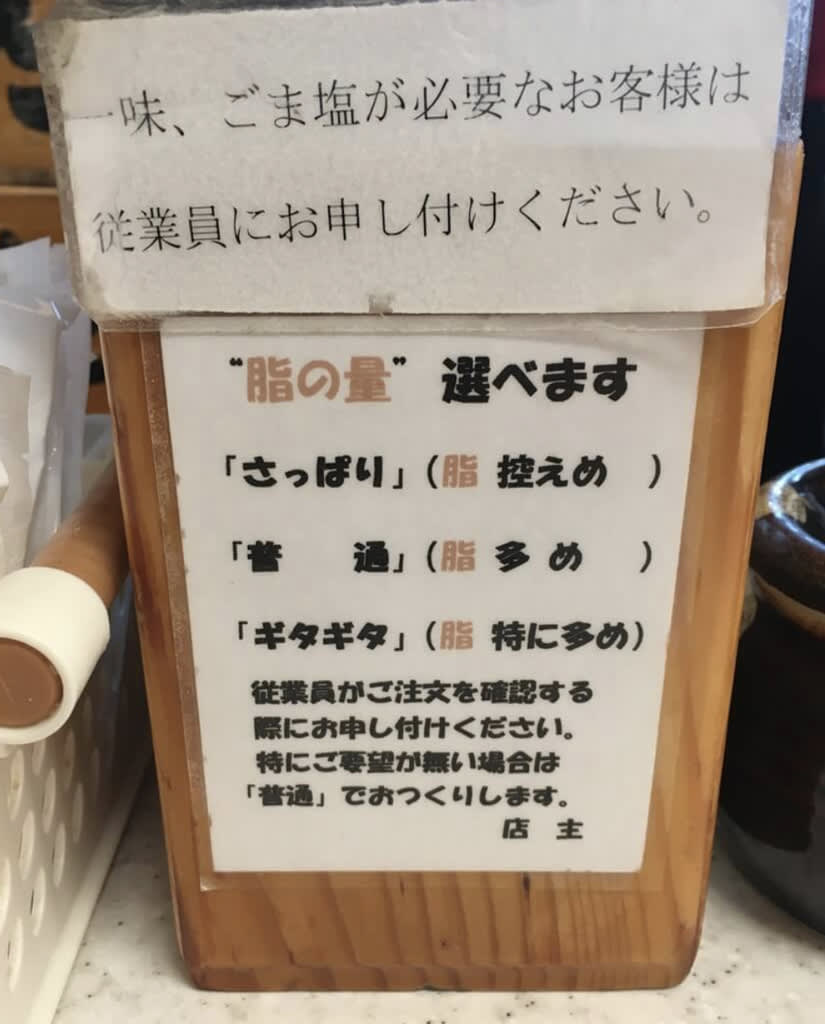 一味、ごま塩が必要なお客様は
従業員にお申し付けください。
“脂の量” 選べます
「さっぱり」(脂 控えめ )
「普 通」(脂 多 め )
「ギタギタ」(脂 特に多め)
従業員がご注文を確認する
際にお申し付けください。
特にご要望が無い場合は
「普通」でおつくりします。
店 主